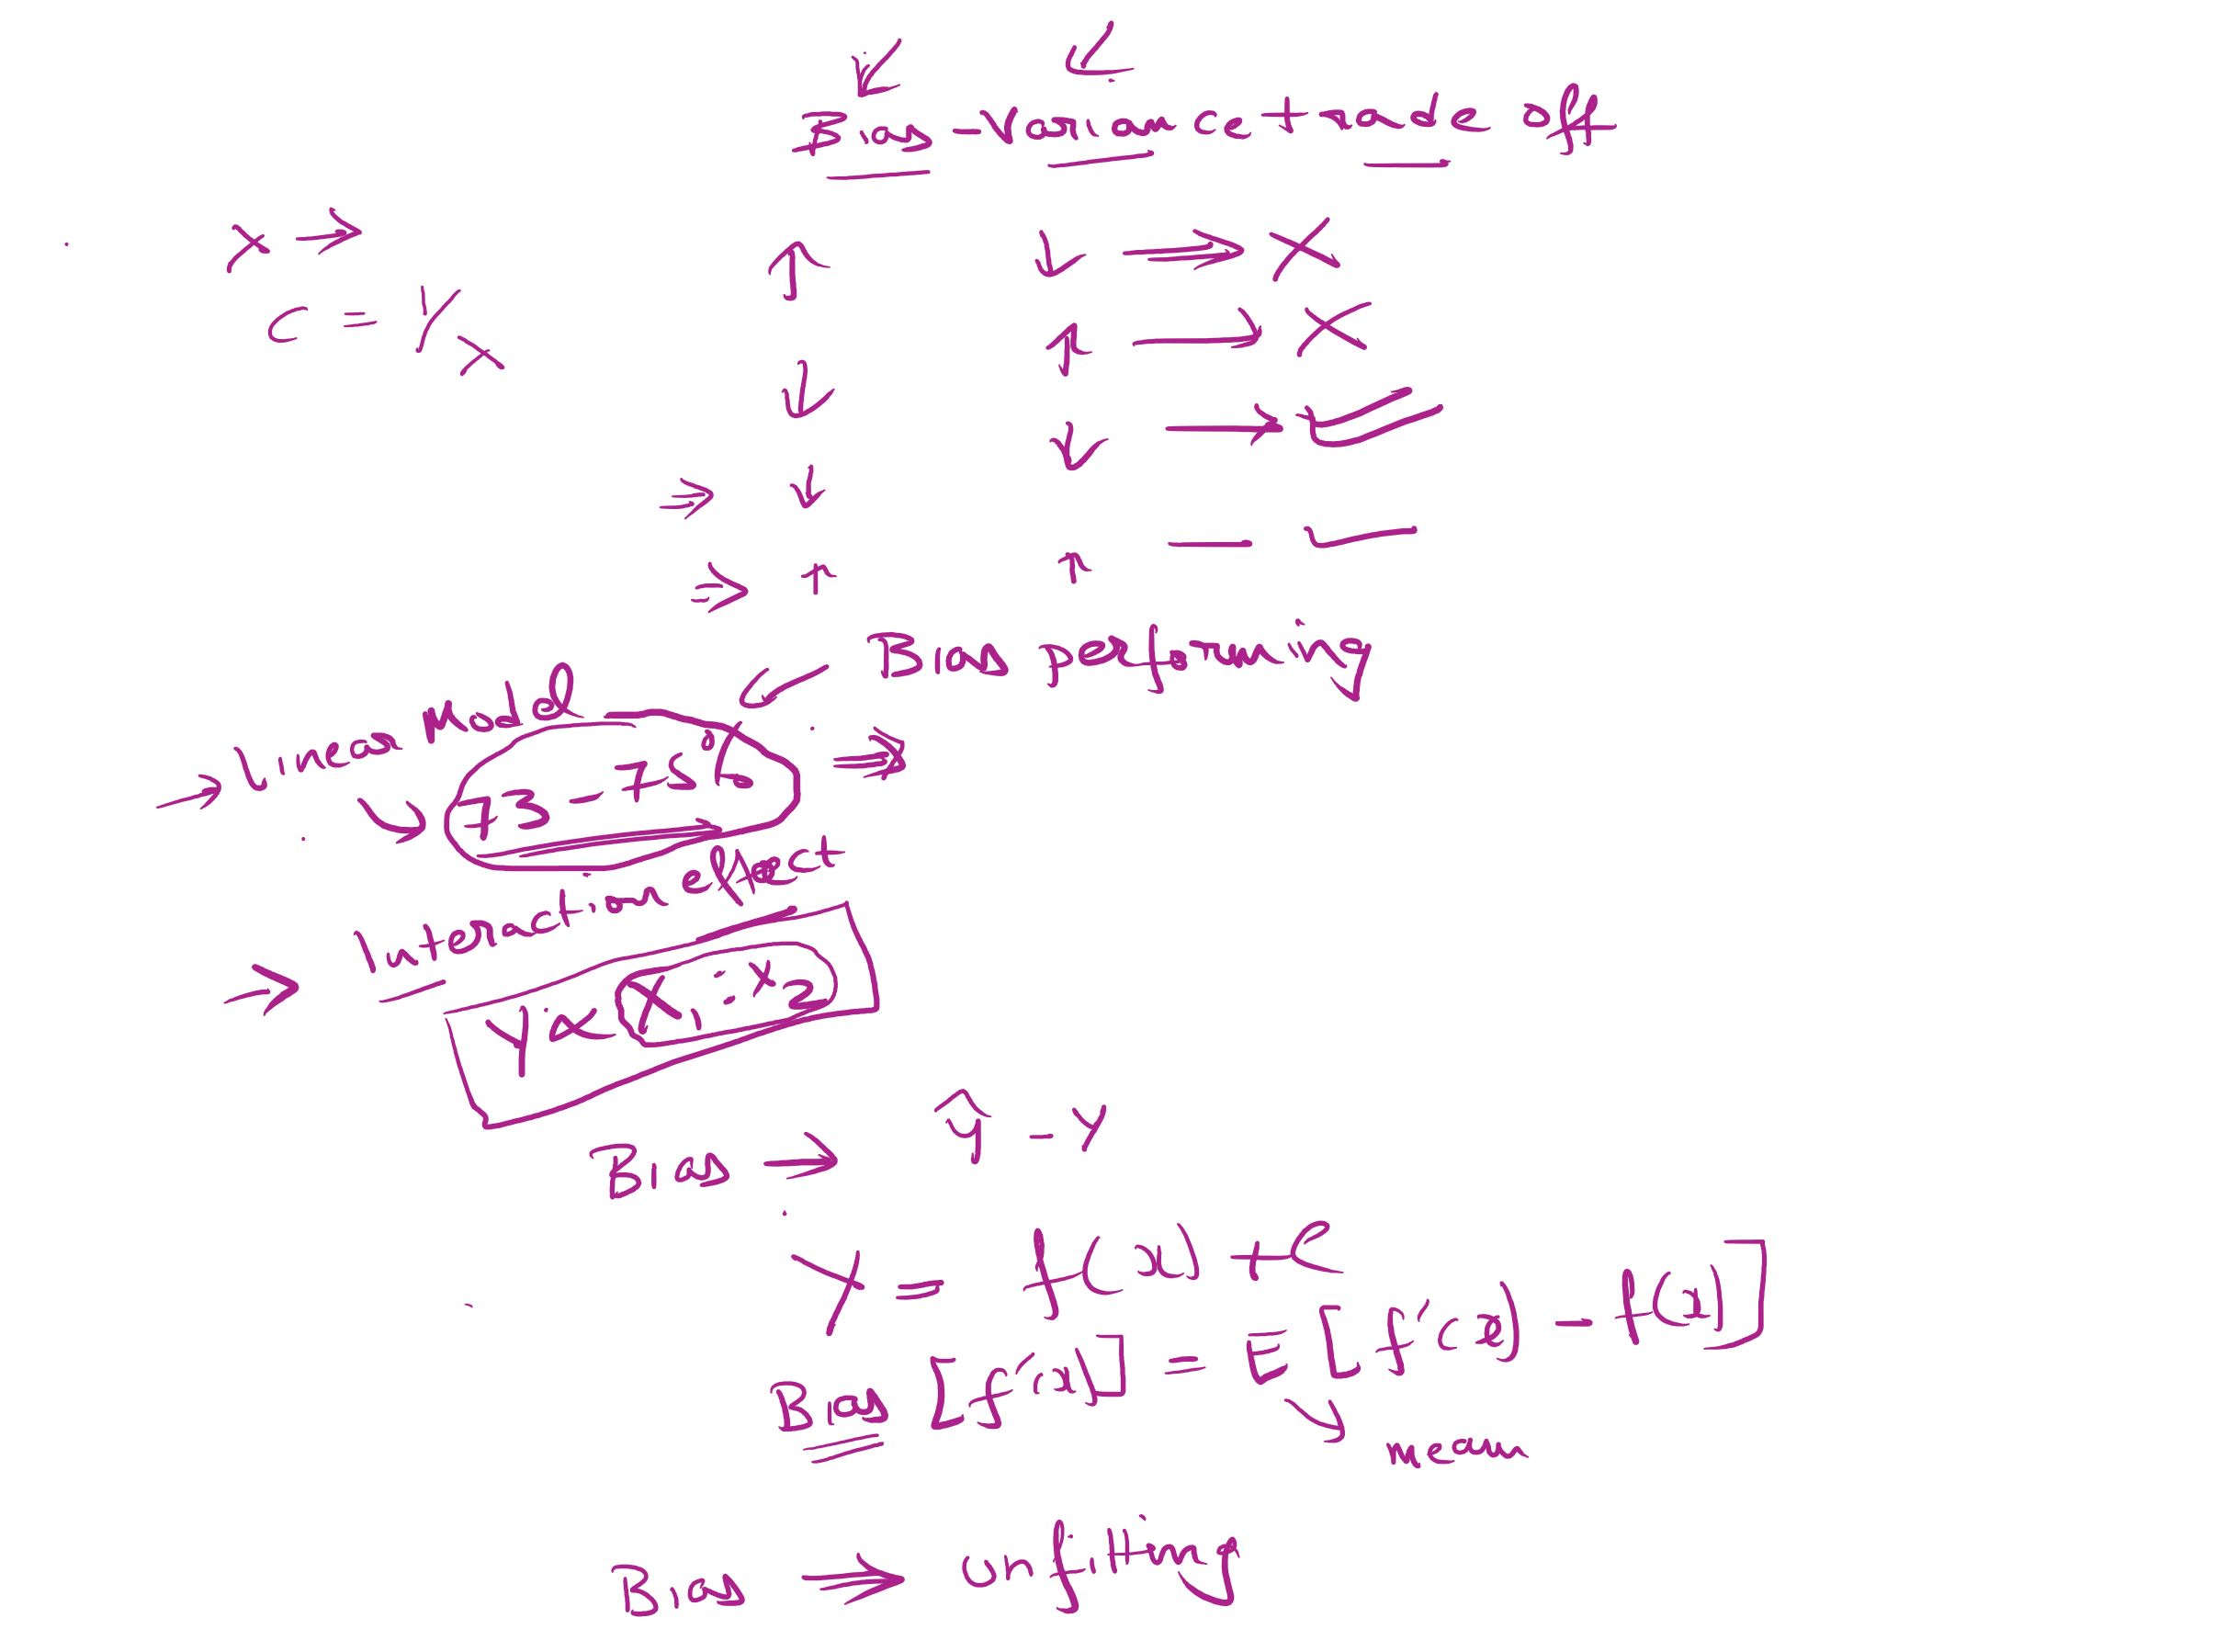 Bias - Variance trade off
X →
C = 1/X
↑ ↓ ⇒ X
↓ ↑ → X
↓ ↓ → ✓
⇒ ↓
⇒ ↑ ↑ — ✓
Bias performing
→ linear Model
73 - 75%
⇒ Interaction effect
Y ∝ X1 : X2
Bias → ŷ - y
Y = f(x) + e
Bias [f'(x)] = E [f'(x) - f(x)]
mean
Bias ⇒ unfitting